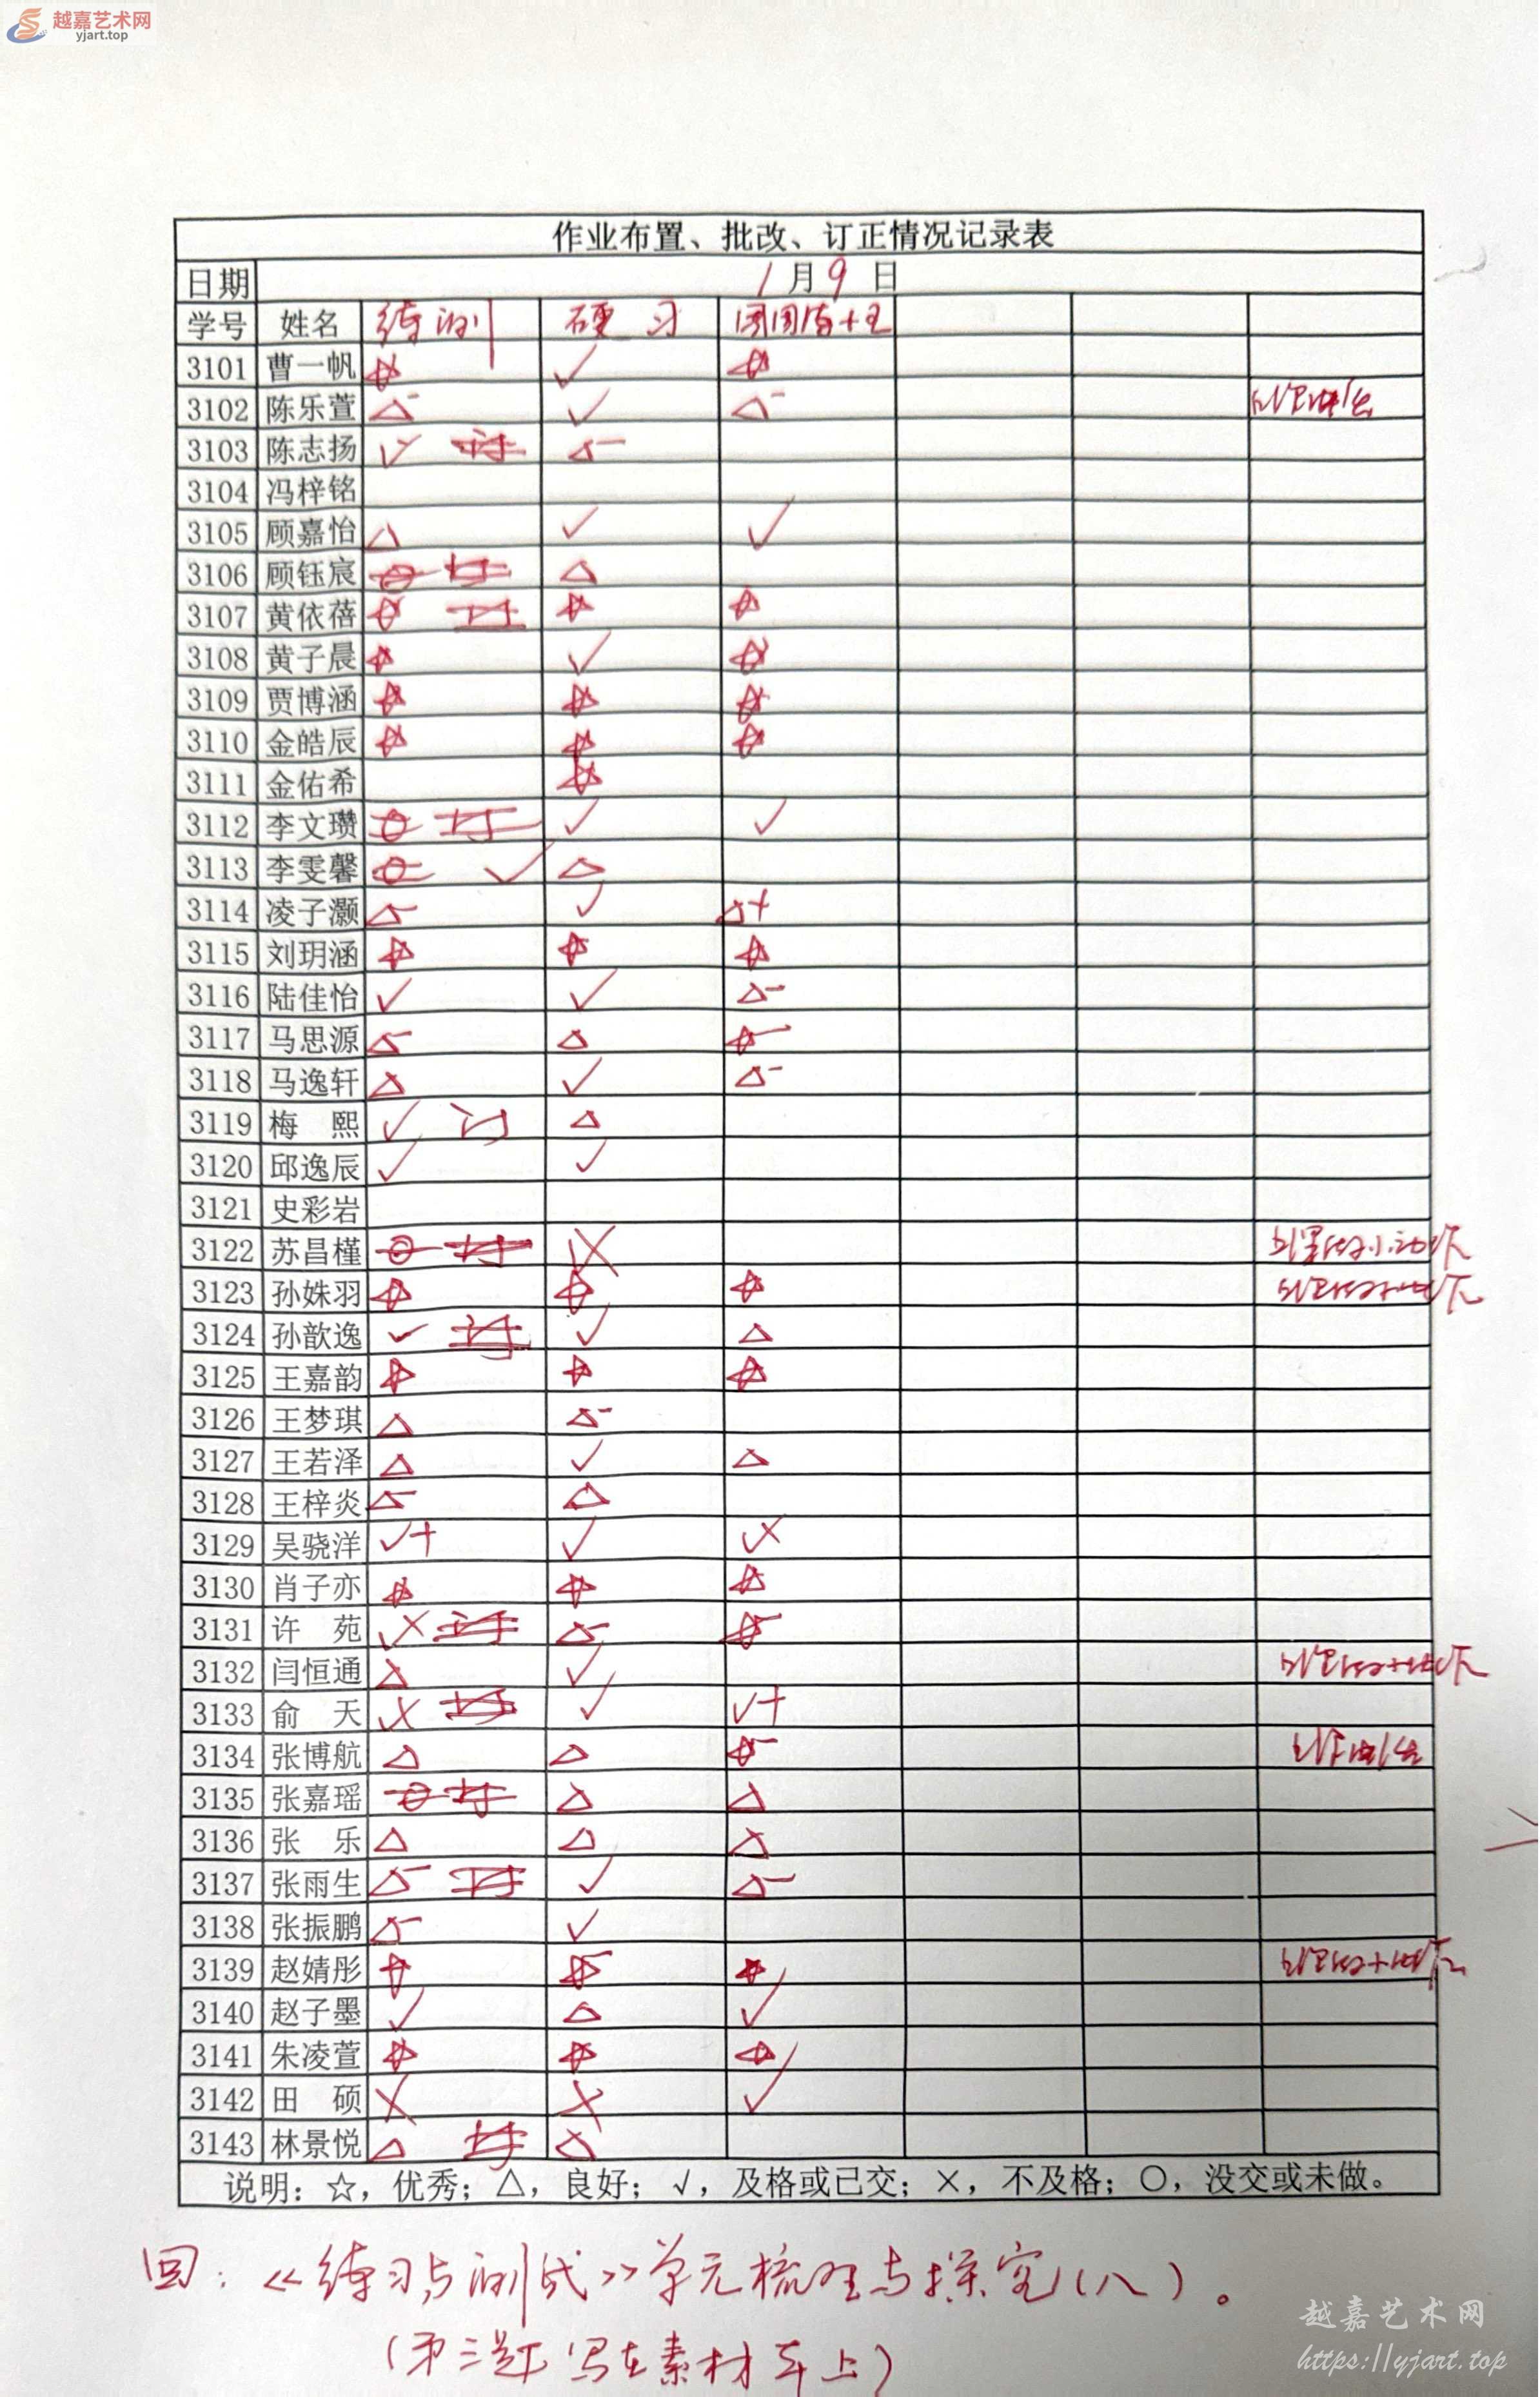 越嘉艺术网
yjart.top
作业布置、批改、订正情况记录表
日期 1月9日
学号 姓名 练测 硬习
3101 曹一帆 ☆ √ ☆
3102 陈乐萱 △- √ △-
3103 陈志扬 √ 订 △-
3104 冯梓铭
3105 顾嘉怡 △ √ √
3106 顾钰宸 ○ 订 △
3107 黄依蓓 ☆ 订 ☆ ☆
3108 黄子晨 ☆ √ ☆
3109 贾博涵 ☆ ☆ ☆
3110 金皓辰 ☆ ☆ ☆
3111 金佑希 ☆
3112 李文瓒 ○ 订 √ √
3113 李雯馨 ○ √ △
3114 凌子灏 △- √ △+
3115 刘玥涵 ☆ ☆ ☆
3116 陆佳怡 √ √ △-
3117 马思源 △- △ ☆-
3118 马逸轩 △ √ △-
3119 梅熙 √ 订 △
3120 邱逸辰 √ √
3121 史彩岩
3122 苏昌槿 ○ 订 ×
3123 孙姝羽 ☆ ☆ ☆
3124 孙歆逸 √ 订 √ △
3125 王嘉韵 ☆ ☆ ☆
3126 王梦琪 △ △-
3127 王若泽 △ √ △
3128 王梓炎 △- △
3129 吴骁洋 √+ √ ×
3130 肖子亦 ☆ ☆ ☆
3131 许苑 × 订 △- ☆-
3132 闫恒通 △ √
3133 俞天 × 订 √ √+
3134 张博航 △ △ ☆-
3135 张嘉瑶 ○ 订 △ △
3136 张乐 △ △ △
3137 张雨生 △- 订 √ △-
3138 张振鹏 △- √
3139 赵婧彤 ☆ ☆- ☆
3140 赵子墨 √ △ √
3141 朱凌萱 ☆ ☆ ☆
3142 田硕 × × √
3143 林景悦 △ 订 △
说明：☆，优秀；△，良好；√，及格或已交；×，不及格；○，没交或未做。
回：《练习与测试》单元梳理与探究（八）。
（第三题写在素材本上）
越嘉艺术网
https://yjart.top